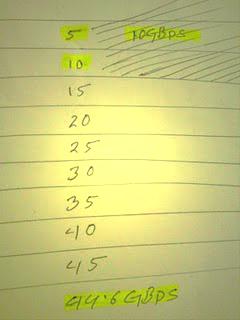 5 10GBPS
10
15
20
25
30
35
40
45
44.6 GBPS